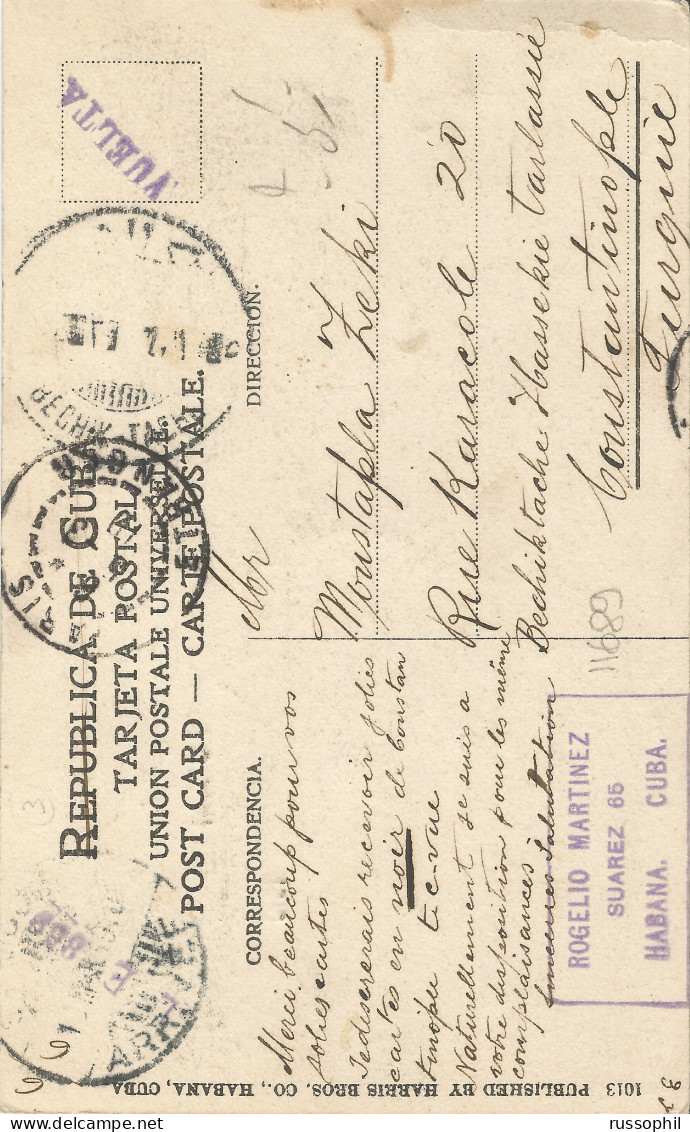 VUELTA
REPUBLICA DE CUBA
TARJETA POSTAL
UNION POSTALE UNIVERSELLE.
POST CARD — CARTE POSTALE.
BECHIK-TACH
PARIS
ETRANGER
ARRIVÉE
CORRESPONDENCIA.
Merci beaucoup pour vos
jolies cartes
Je desirerais recevoir jolies
cartes en noir de Constan
tinople t-c-vue
Naturellement je suis a
votre disposition pour les même
complaisances
Sinceres Salutation
DIRECCION.
Mr
Moustapla Zeki
Rue Karacole 20
Bechiktache Hassekie tarlassie
Constantinople
Turquie
11689
ROGELIO MARTINEZ
SUAREZ 65
HABANA. CUBA.
1013 PUBLISHED BY HARRIS BROS. CO., HABANA, CUBA
russophil